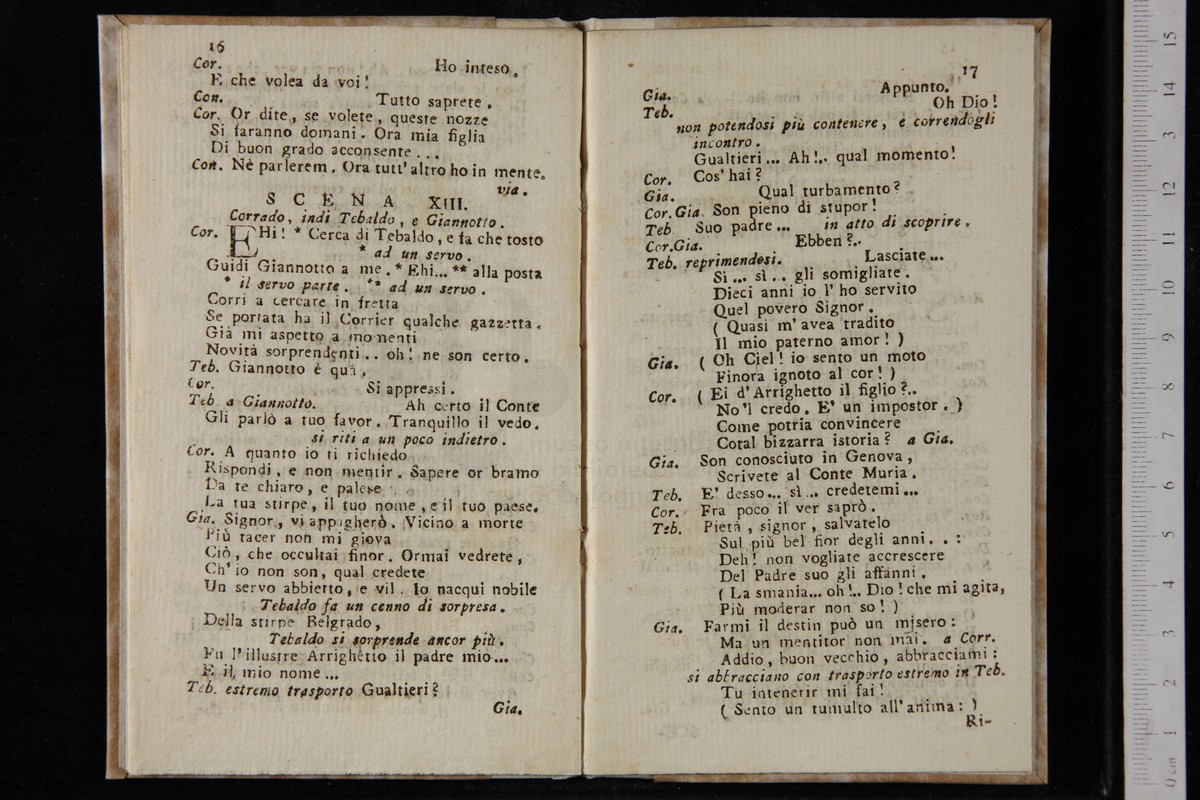 16
Cor. Ho inteso.
E che volea da voi!
Con. Tutto saprete.
Cor. Or dite, se volete, queste nozze
Si faranno domani. Ora mia figlia
Di buon grado acconsente...
Con. Nè parlerem. Ora tutt' altro ho in mente.
via.
SCENA XIII.
Corrado, indi Tebaldo, e Giannotto.
Cor. EHi! * Cerca di Tebaldo, e fa che tosto
* ad un servo.
Guidi Giannotto a me. * Ehi... ** alla posta
* il servo parte. ** ad un servo.
Corri a cercare in fretta
Se portata ha il Corrier qualche gazzetta.
Già mi aspetto a momenti
Novità sorprendenti.. oh! ne son certo.
Teb. Giannotto è quà,
Cor. Si appressi.
Teb. a Giannotto. Ah certo il Conte
Gli parlò a tuo favor. Tranquillo il vedo.
si riti a un poco indietro.
Cor. A quanto io ti richiedo
Rispondi, e non mentir. Sapere or bramo
Da te chiaro, e palese
La tua stirpe, il tuo nome, e il tuo paese.
Gia. Signor, vi appagherò. Vicino a morte
Più tacer non mi giova
Ciò, che occultai finor. Ormai vedrete,
Ch' io non son, qual credete
Un servo abbietto, e vil. Io nacqui nobile
Tebaldo fa un cenno di sorpresa.
Della stirpe Belgrado,
Tebaldo si sorprende ancor più.
Fu l'illustre Arrighetto il padre mio...
E il mio nome...
Teb. estremo trasporto Gualtieri?
Gia.
17
Gia. Appunto.
Teb. Oh Dio!
non potendosi più contenere, e correndogli
incontro.
Gualtieri... Ah!.. qual momento!
Cor. Cos' hai?
Gia. Qual turbamento?
Cor. Gia. Son pieno di stupor!
Teb Suo padre... in atto di scoprire.
Cor.Gia. Ebben?..
Teb. reprimendosi. Lasciate...
Sì... sì.. gli somigliate.
Dieci anni io l' ho servito
Quel povero Signor.
( Quasi m' avea tradito
Il mio paterno amor! )
Gia. ( Oh Ciel! io sento un moto
Finora ignoto al cor! )
Cor. ( Ei d' Arrighetto il figlio?..
No'l credo. E' un impostor. )
Come potria convincere
Cotal bizzarra istoria? a Gia.
Gia. Son conosciuto in Genova,
Scrivete al Conte Muria.
Teb. E' desso... sì... credetemi...
Cor. Fra poco il ver saprò.
Teb. Pietà, signor, salvatelo
Sul più bel fior degli anni. . :
Deh! non vogliate accrescere
Del Padre suo gli affanni.
( La smania... oh!.. Dio! che mi agita,
Più moderar non so! )
Gia. Farmi il destin può un misero:
Ma un mentitor non mai. a Corr.
Addio, buon vecchio, abbracciami:
si abbracciano con trasporto estremo in Teb.
Tu intenerir mi fai!
( Sento un tumulto all' anima: )
Ri-
0 cm 1 2 3 4 5 6 7 8 9 10 11 12 13 14 15